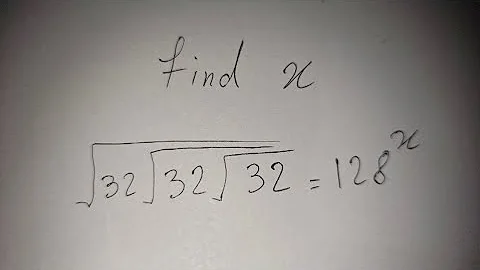 find x
√32√32√32 = 128^x